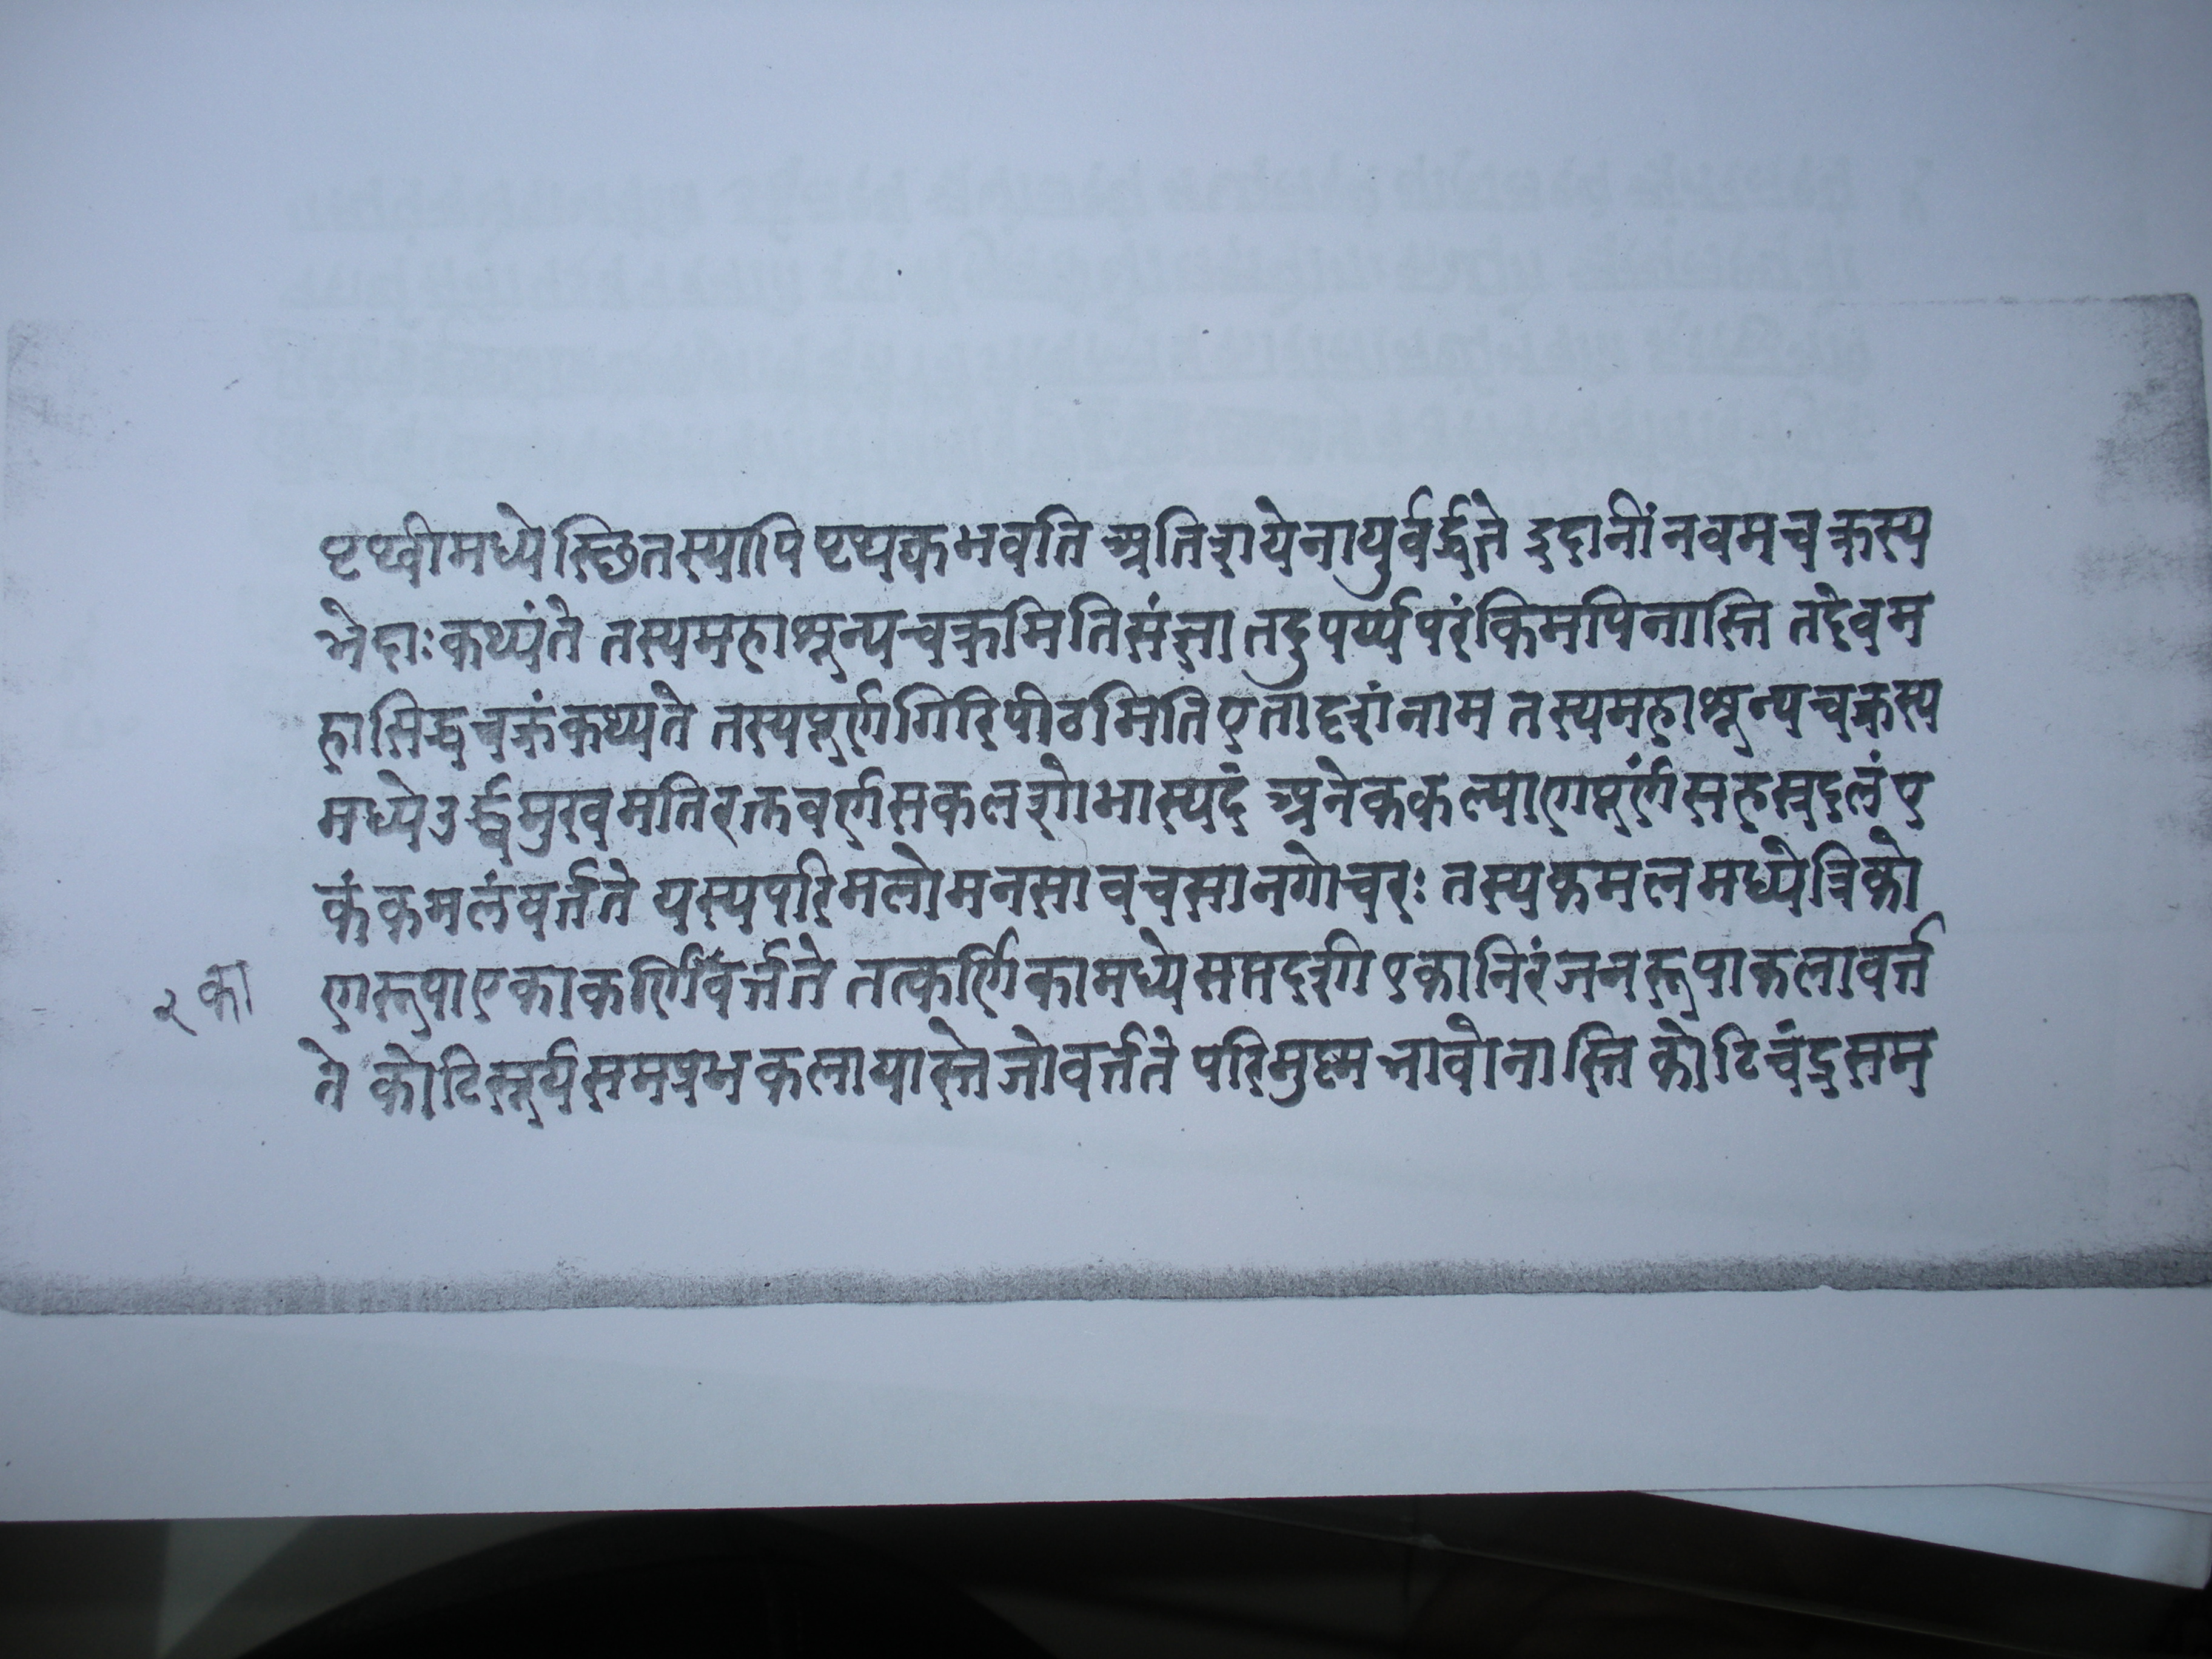 पृथ्वीमध्येस्छितस्यापि पृथ्यक्भवति अतिशयेनायुर्वर्द्धते इदानीं नवमचक्रस्य
भेदाः कथ्यंते तस्यमहाश्रून्यचक्रमितिसंज्ञा तदुपर्य्यपरंकिमपिनास्ति तदेवम
हासिद्धचक्रंकथ्यते तस्यपूर्णगिरिपीठमितिएतादृशंनाम तस्यमहाश्रून्यचक्रस्य
मध्येउर्द्ध्वमुखमतिरक्तवर्णसकलशोभास्पदं अनेककल्याणपूर्णंसहस्रदलंए
कंकमलंवर्त्तते यस्यपरिमलोमनसावचसानगोचरः तस्यकमलमध्येत्रिको
णरूपाएकाकर्णिवर्त्तते तत्कर्णिकामध्येसप्तदशीएकानिरंजनरूपाकलावर्त्त
२ का
ते कोटिसूर्यसमप्रभकलायास्तेजोवर्त्तते परिमुष्मभावोनास्ति कोटिचंद्रसम